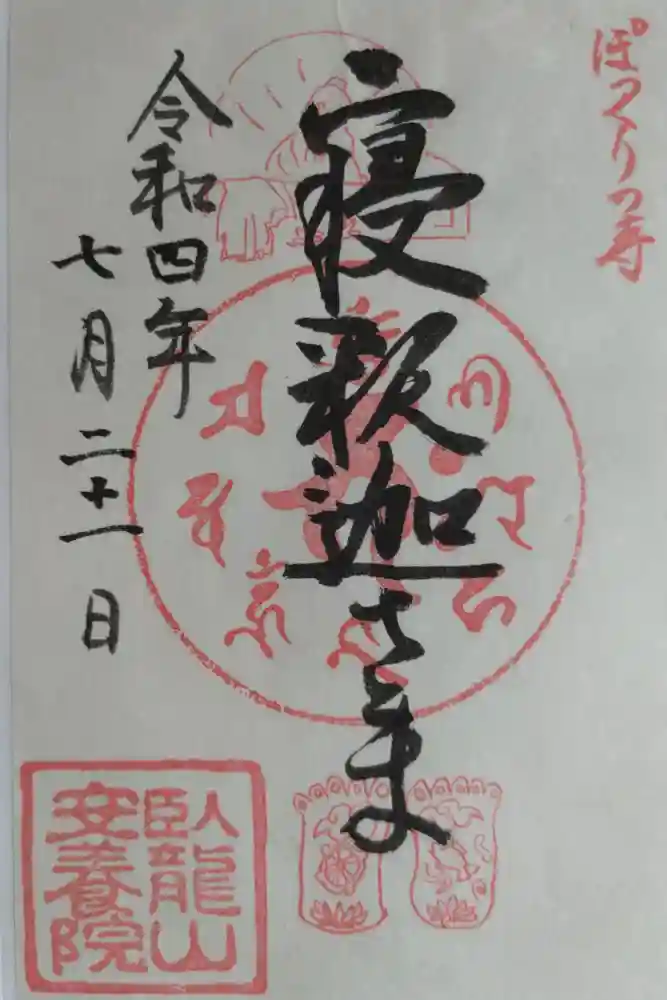 ぽっくりっ寺
寝釈迦さま
令和四年
七月二十一日
臥龍山
安養院